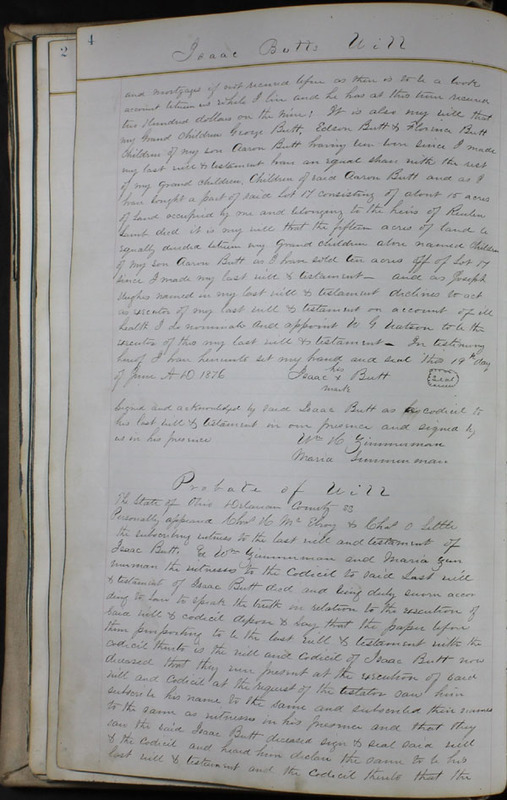 2
4
Isaac Butts Will
and mortgages if not secured before as there is to be a book
account between us while I live and he has at this time received
two Hundred dollars on the him! It is also my will that
my Grand Children George Butt, Edson Butt & Florence Butt
Children of my son Aaron Butt having been born since I made
my last will & testament have an equal share with the rest
of my grand children, Children of said Aaron Butt and as I
have bought a part of said Lot 17 consisting of about 15 acres
of land occupied by me and belonging to the heirs of Reuben
Lunt decd it is my will that the fifteen acres of land be
equally divided between my Grand children above named Children
of my son Aaron Butt as I have sold ten acres off of Lot 17
since I made my last will & testament — and as Joseph
Hughes named in my last will & testament declines to act
as executor of my last will & testament on account of ill
health I do nominate and appoint W G Watson to be the
executor of this my last will & testament — In testimony
hereof I have hereunto set my hand and seal this 19th day
of June A D 1876
his
Isaac x Butt
mark
Seal
Signed and acknowledged by said Isaac Butt as codicil to
his last will & testament in our presence and signed by
us in his presence
Wm H Zimmerman
Maria Zimmerman
Probate of Will
The State of Ohio Delaware County ss
Personally appeared Chas H McElroy & Chas O Little
the subscribing witness to the last will and testament of
Isaac Butt, & Wm Zimmerman and Maria Zim
merman the witnesses to the Codicil to said Last will
& testament of Isaac Butt decd and being duly sworn accor
ding to law to speak the truth in relation to the execution of
said will & codicil depose & say that the paper before
them purporting to be the last will & testament with the
codicil thereto is the will and Codicil of Isaac Butt now
deceased that they were present at the execution of said
will and Codicil at the request of the testator saw him
subscribe his name to the same and subscribed their names
to the same as witnesses in his presence and that they
saw the said Isaac Butt deceased sign & seal said will
& the Codicil and heard him declare the same to be his
last will & testament and the Codicil thereto that the